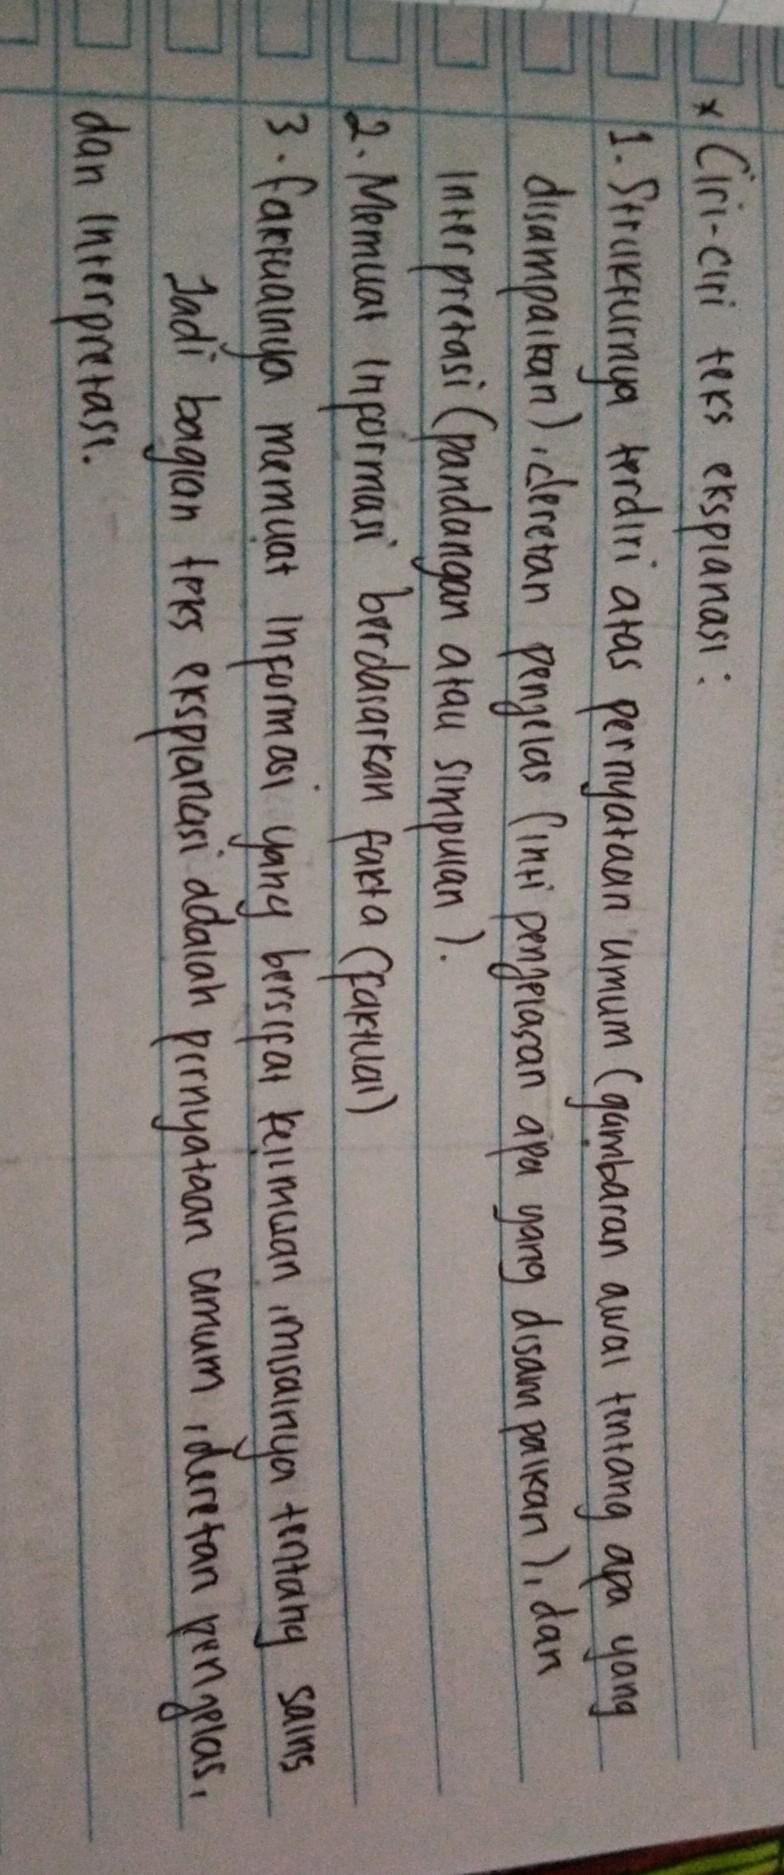 * Ciri-ciri teks eksplanasi :
1. Strukturnya terdiri atas pernyataan umum (gambaran awal tentang apa yang
disampaikan), deretan penjelas (inti penjelasan apa yang disampaikan), dan
interpretasi (pandangan atau simpulan).
2. Memuat informasi berdasarkan fakta (faktual)
3. faktualnya memuat informasi yang bersifat keilmuan, misalnya tentang sains
Jadi bagian teks eksplanasi adalah pernyataan umum, deretan penjelas,
dan interpretasi.